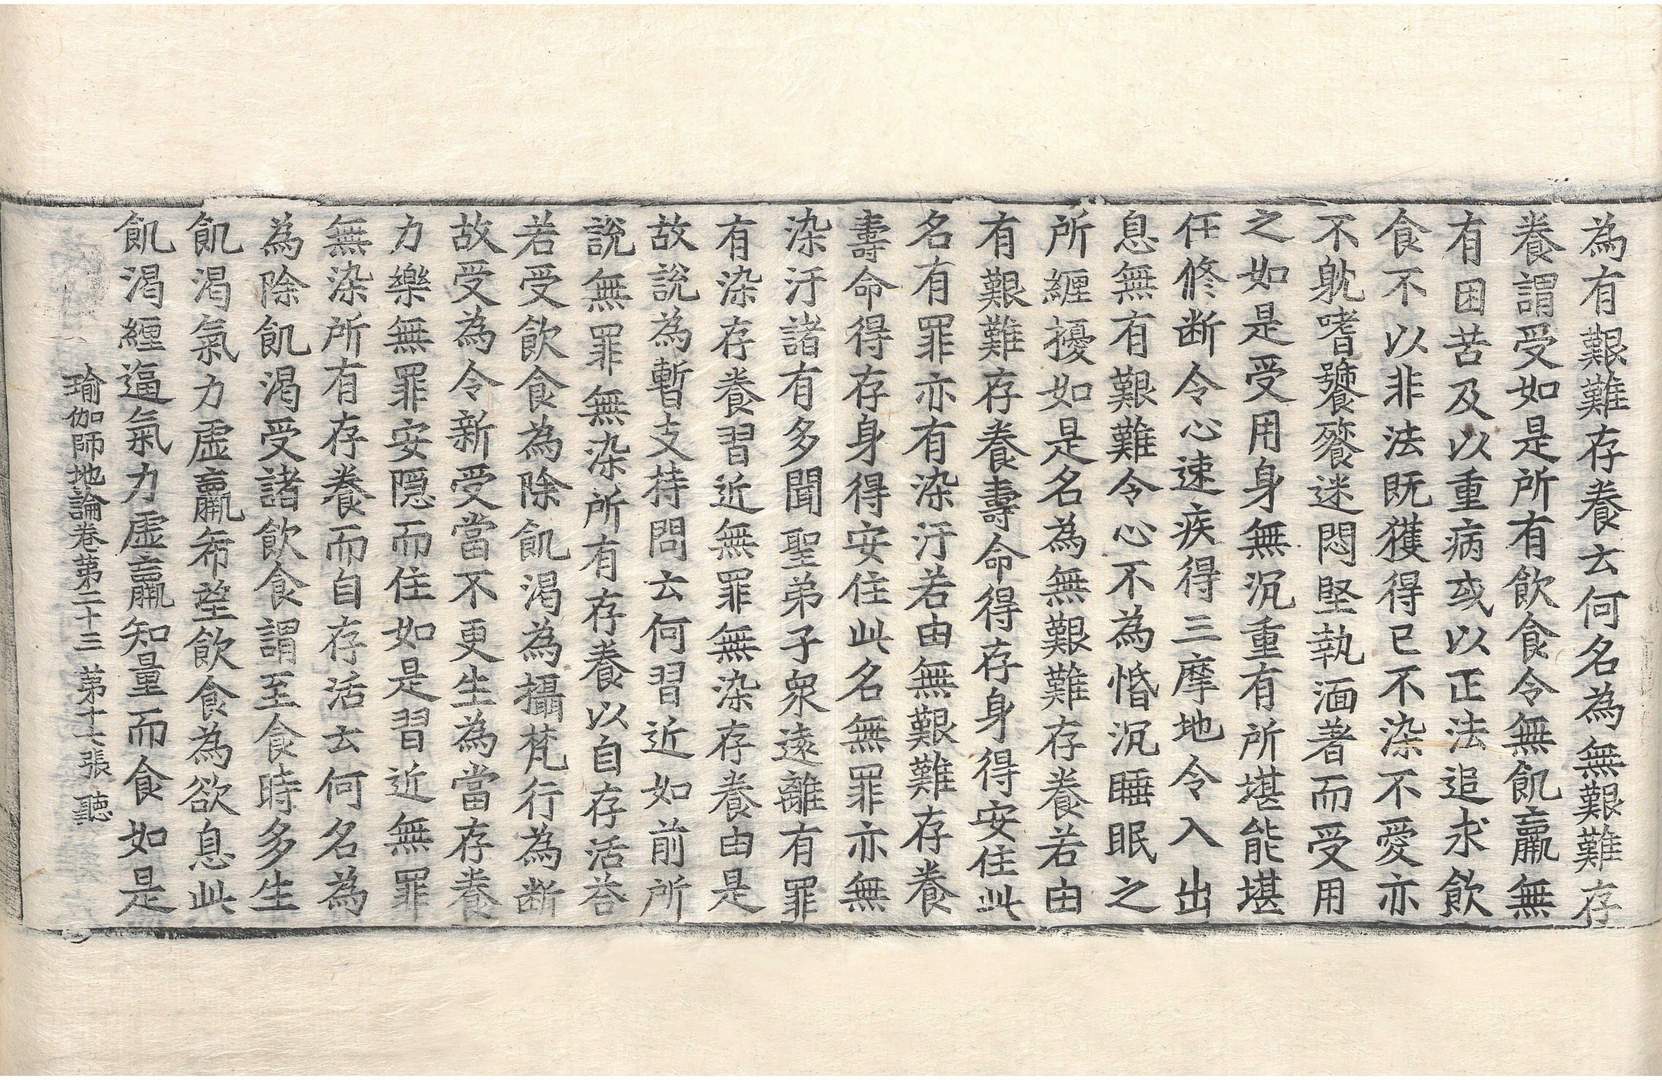 為有艱難存養云何名為無艱難存
養謂受如是所有飲食令無飢羸無
有困苦及以重病或以正法追求飲
食不以非法既獲得已不染不愛亦
不躭嗜饕餮迷悶堅執湎著而受用
之如是受用身無沉重有所堪能堪
任修断令心速疾得三摩地令入出
息無有艱難令心不為惛沉睡眠之
所纏擾如是名為無艱難存養若由
有艱難存養壽命得存身得安住此
名有罪亦有染汙若由無艱難存養
壽命得存身得安住此名無罪亦無
染汙諸有多聞聖弟子衆遠離有罪
有染存養習近無罪無染存養由是
故說為暫支持問云何習近如前所
說無罪無染所有存養以自存活答
若受飲食為除飢渴為攝梵行為断
故受為令新受當不更生為當存養
力樂無罪安隱而住如是習近無罪
無染所有存養而自存活云何名為
為除飢渴受諸飲食謂至食時多生
飢渴氣力虛羸希望飲食為欲息此
飢渴纏逼氣力虛羸知量而食如是
瑜伽師地論卷第二十三 第十七張 聽